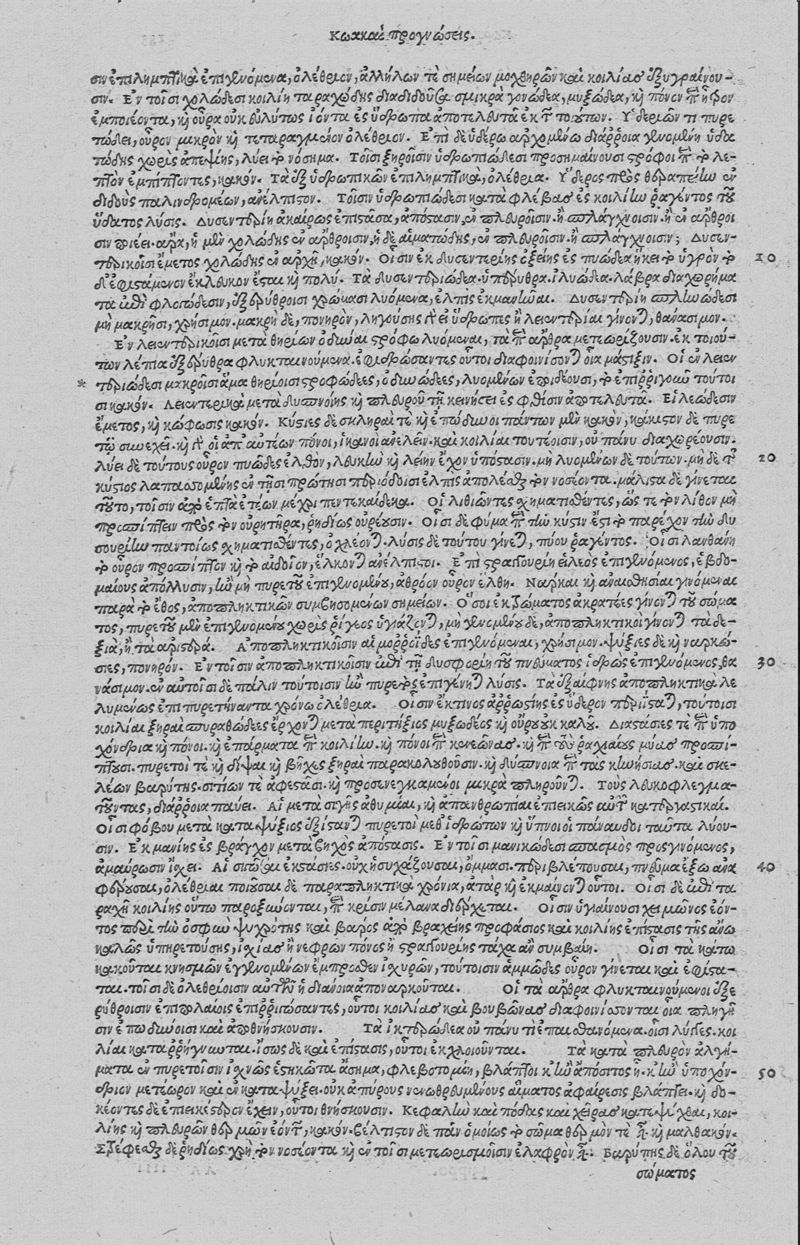 Κωακαὶ προγνώσεις.
σιν ἐπιλημπτικὰ ἐπιγινόμενα, ὀλέθριον, ἀλλήλων τε σημείων μοχθηρῶν καὶ κοιλίας ἐξυγραίνου-
σιν. Ἐν τοῖσι χολώδεσι κοιλίη ταραχώδης διαδιδοῦσα σμικρὰ γονώδεα, μυξώδεα, καὶ πόνον
ἐμποιέοντα, καὶ οὖρα οὐκ εὐλύτως ἰόντα ἐς ὕδρωπα ἀποτελευτᾷ ἐκ τῶν τοιούτων.
οὖρον μικρὸν καὶ τεταραγμένον ὀλέθριον. Ἐπὶ δὲ ὑδέρῳ ἀρχομένῳ διάρροια γινομένη ὑδα-
τώδης χωρὶς ἀπεψίης, λύει τὸ νόσημα. Τοῖσι ξηροῖσιν ὑδρωπιώδεσι προσημαίνουσι στρόφοι
ἐμπίπτοντες, κακόν. Τὰ ἐξ ὑδρωπικῶν ἐπιλημπτικὰ, ὀλέθρια. Ὕδερος πρὸς θεραπείην ἐν
διδοὺς παλινδρομέων, ἀνέλπιστον. Τοῖσιν ὑδρωπιώδεσι κατὰ φλέβας ἐς κοιλίην ῥαγέντος τοῦ
ὕδατος λύσις. Δυσεντερίη ἀκαίρως ἐπιστᾶσα, ἀπόστασιν ἐν πλευροῖσιν ἢ σπλάγχνοισιν ἢ ἐν ἄρθροι
σιν ποιέει. ἆρα, ἡ μὲν χολώδης ἐν ἄρθροισιν, ἡ δὲ αἱματώδης, ἐν πλευροῖσιν ἢ σπλάγχνοισιν; Δυσεν-
τερικοῖσι ἔμετος χολώδης ἐν ἀρχῇ, κακόν. Οἷσιν ἐκ δυσεντερίης ὀξείης ἐς πυώδεα ἥκει τὸ ὑγρὸν τὸ 10
δὲ ἐφιστάμενον ἔκλευκον ἔσται καὶ πολύ. Τὰ δυσεντεριώδεα ὑπέρυθρα ἰλυώδεα λάβρα διαχωρήμα
τα ἐπὶ φλογώδεσιν, ἐξερύθροισι χρώμασι λυόμενα, ἐλπὶς ἐκμανῆναι. Δυσεντερίη σπληνώδεσι
μὴ μακρὴ, χρήσιμον. μακρὴ δὲ, πονηρὸν, ληγούσης γὰρ εἰ ὕδρωπες ἢ λειεντερίαι γίνονται, θανάσιμον.
Ἐν λειεντερικοῖσι μετὰ θηρίων ὀδύναι στρόφῳ λυόμεναι, τὰ ἄρθρα μετεωρίζουσιν. ἐκ τοιού-
των λέπια ἐξέρυθρα φλυκταινούμενα. ἐφιδρώσαντες οὗτοι διαφοινίσσονται οἷα μάστιξιν. Οἱ ἐν λειεν
* τεριώδεσι μακροῖσι ἅμα θηρίοισι στροφώδεες, ὀδυνώδεες, λυομένων ἐποιδέουσι, τὸ ἐπιρριγοῦν τούτοι
σι κακόν. Λειεντερικὰ μετὰ δυσπνοίης καὶ πλευροῦ κεινήσει ἐς φθίσιν ἀποτελευτᾷ. Εἰλεώδεσιν
ἔμετος, καὶ κώφωσις κακόν. Κύστιες δὲ σκληραί τε καὶ ἐπώδυνοι πάντων μὲν κακὸν, κάκιστον δὲ πυρε
τῷ συνεχεῖ. καὶ γὰρ οἱ ἀπ' αὐτέων πόνοι, ἱκανοὶ ἀνελεῖν. καὶ κοιλίαι τουτέοισιν, οὐ πάνυ διαχωρέουσιν.
λύει δὲ τούτους οὖρον πυῶδες ἐλθὸν, λευκὴν καὶ λείην ἔχον ὑπόστασιν. μὴ λυομένων δὲ τούτων μὴ δὲ τῆς 20
κύστιος λαπασσομένης ἐν τῇσι πρώτῃσι περιόδοισι ἐλπὶς ἀπολέσθαι τὸν νοσέοντα. μάλιστα δὲ γίνεται
τοῦτο, τοῖσιν ἀπὸ ἑπτὰ ἐτέων μέχρι πεντεκαίδεκα. Οἱ λιθιῶντες σχηματισθέντες, ὥστε τὸν λίθον μὴ
προσπίπτειν πρὸς τὸν οὐρητῆρα, ῥηϊδίως οὐρέουσιν. Οἷσι δὲ φῦμα περὶ τὴν κύστιν ἐστὶ τὸ παρέχον τὴν δυ
σουρίην παντοίως σχηματισθέντες, ὀχλέονται. λύσις δὲ τούτου γίνεται, πύου ῥαγέντος. Οἷσι λανθάνει
τὸ οὖρον προσπίπτον καὶ τὸ αἰδοῖον, ἕλκονται ἀνέλπιστοι. Ἐπὶ στραγγουρίῃ εἰλεὸς ἐπιγινόμενος, ἑβδο-
μαίους ἀπόλλυσιν, ἢν μὴ πυρετοῦ ἐπιγενομένου, ἀθρόον οὖρον ἔλθῃ. Νάρκαι καὶ ἀναισθησίαι γινόμεναι
παρὰ τὸ ἔθος, ἀποπληκτικῶν συμβησομένων σημεῖον. Ὅσοι ἐκ τρώματος ἀκρατέες γίνονται τοῦ σώμα
τος, πυρετοῦ μὲν ἐπιγενομένου χωρὶς ῥίγεος ὑγιάζονται, μὴ γινομένου δὲ, ἀποπληκτικοὶ γίνονται τὰ δε-
ξιὰ, ἢ τὰ ἀριστερά. Ἀποπληκτικοῖσιν αἱμορροΐδες ἐπιγινόμεναι, χρήσιμον. ψύξιες δὲ καὶ ναρκώ-
σιες, πονηρόν. Ἐν τοῖσιν ἀποπληκτικοῖσιν ἐπὶ τῇ δυσφορίῃ τοῦ πνεύματος ἱδρὼς ἐπιγινόμενος, θα 30
νάσιμον. ἐν αὐτοῖσι δὲ πάλιν τούτοισιν ἢν πυρετὸς ἐπιγένηται λύσις. Τὰ ἐξαίφνης ἀποπληκτικὰ λε
λυμένως ἐπιπυρετήναντα χρόνῳ ὀλέθρια. Οἷσιν ἔκ τινος ἀρρωστίης ἐς ὕδερον περιίσταται, τούτοισι
κοιλίαι ξηραὶ σπυραθώδεες ἔρχονται μετὰ περιτήξιος μυξώδεος καὶ οὔρου οὐ καλοῦ. Διατάσιες τε ὑπο
χόνδρια καὶ πόνοι. καὶ ἐπάρματα κοιλίην. καὶ πόνοι κενεῶνας. καὶ ῥαχιαίους μύας προσπί-
πτουσι. πυρετοί τε καὶ δίψαι καὶ βῆχες ξηραὶ παρακολουθοῦσιν. καὶ δύσπνοια ἐπὶ τὰς κινήσιας. καὶ σκε-
λέων βαρύτης. σιτίων τε ἀφεστᾶσι. καὶ προσενεγκάμενοι μικρὰ πληροῦνται. Τοὺς λευκοφλεγμα-
τοῦντας, διάρροια παύει. Αἱ μετὰ σιγῆς ἀθυμίαι, καὶ ἀπανθρωπίαι ἐπιεικῶς
Οἷσι φόβου μετὰ κατάψυξιος ἐξίστανται πυρετοὶ μεθ' ἱδρώτων καὶ ὕπνοι οἱ πάννυχοι ταῦτα λύου-
σιν. Ἐκ μανίης ἐς βράγχον μετὰ βηχὸς ἀπόστασις. Ἐν τοῖσι μανικώδεσι σπασμὸς προσγινόμενος,
ἀμαύρωσιν ἴσχει. Αἱ σιγῶσαι ἐκστάσιες οὐχ ἡσυχάζουσαι, ὄμμασι περιβλέπουσαι, πνεῦμα ἔξω ἀνα 40
φέρουσαι, ὀλέθριαι. ποιέουσαι δὲ παραπληκτικὰ χρόνια, ἀτὰρ καὶ ἐκμαίνονται οὗτοι. Οἷσι δὲ ἐπὶ τα
ραχῇ κοιλίης οὕτω παροξύνονται, κρίσιν μέλανα διέρχεται. Οἷσιν ὑγιαίνουσι χειμῶνος ἐόν-
τος περὶ τὴν ὀσφὺν ψυχρότης καὶ βάρος ἀπὸ βραχείης προφάσιος καὶ κοιλίης ἐπίστασις τῆς ἄνω
καλῶς ὑπηρετούσης, ἰσχιὰς ἢ νεφρῶν πόνος ἢ στραγγουρίης τάχα ἂν συμβαίη. Οἷσι τὰ κάτω
κακοῦται κνησμῶν ἐγγινομένων ἔμπροσθεν ἰσχυρῶν, τούτοισιν ἀμμῶδες οὖρον γίνεται καὶ ἐφίστα-
ται. τοῖσι δὲ ὀλεθρίοισιν αὐτῶν ἡ διάνοια ἀποναρκοῦται. Οἷσι τὰ ἄρθρα φλυκταινούμενοι ἐξε
ρύθροισιν ἐπιπολαίοις ἐπιρριγώσαντες, οὗτοι κοιλίας καὶ βουβῶνας διαφοινίσσονται οἷα πληγῇ
σιν ἐπωδύνοισι καὶ ἀποθνήσκουσιν. Τὰ ἰκτερώδεα οὐ πάνυ τι ἐπαισθανόμενα. οἷσι λύγγες. κοι
λίαι καταρρήγνυνται. ἴσως δὲ καὶ ἐπίστασις, οὗτοι ἐκχλοιοῦνται. Τὰ κατὰ πλευρὸν ἀλγή-
ματα ἐν πυρετοῖσιν ἰσχνῶς ἑστηκότα ἄσημα, φλεβοτομίη, βλάπτει κἢν ἀπόσιτος ᾖ. κἢν ὑποχόν- 50
δριον μετέωρον καὶ ἐν καταψύξει. οὐκ ἀπύρους νενωθρευμένους αἵματος ἀφαίρεσις βλάπτει. καὶ δο-
κέοντες δὲ ἐπιεικέστερον ἔχειν, οὗτοι θνήσκουσιν. Κεφαλὴν καὶ πόδας καὶ χεῖρας κατεψύχθαι, κοι-
λίης καὶ πλευρῶν θερμῶν ἐόντων, κακόν. βέλτιστον δὲ πᾶν ὁμοίως τὸ σῶμα θερμόν τε εἶναι καὶ μαλθακόν.
Στρέφεσθαι δὲ ῥηϊδίως χρὴ τὸν νοσέοντα καὶ ἐν τοῖσι μετεωρισμοῖσιν ἐλαφρὸν εἶναι. Βαρύτης δὲ ὅλου τοῦ
σώματος